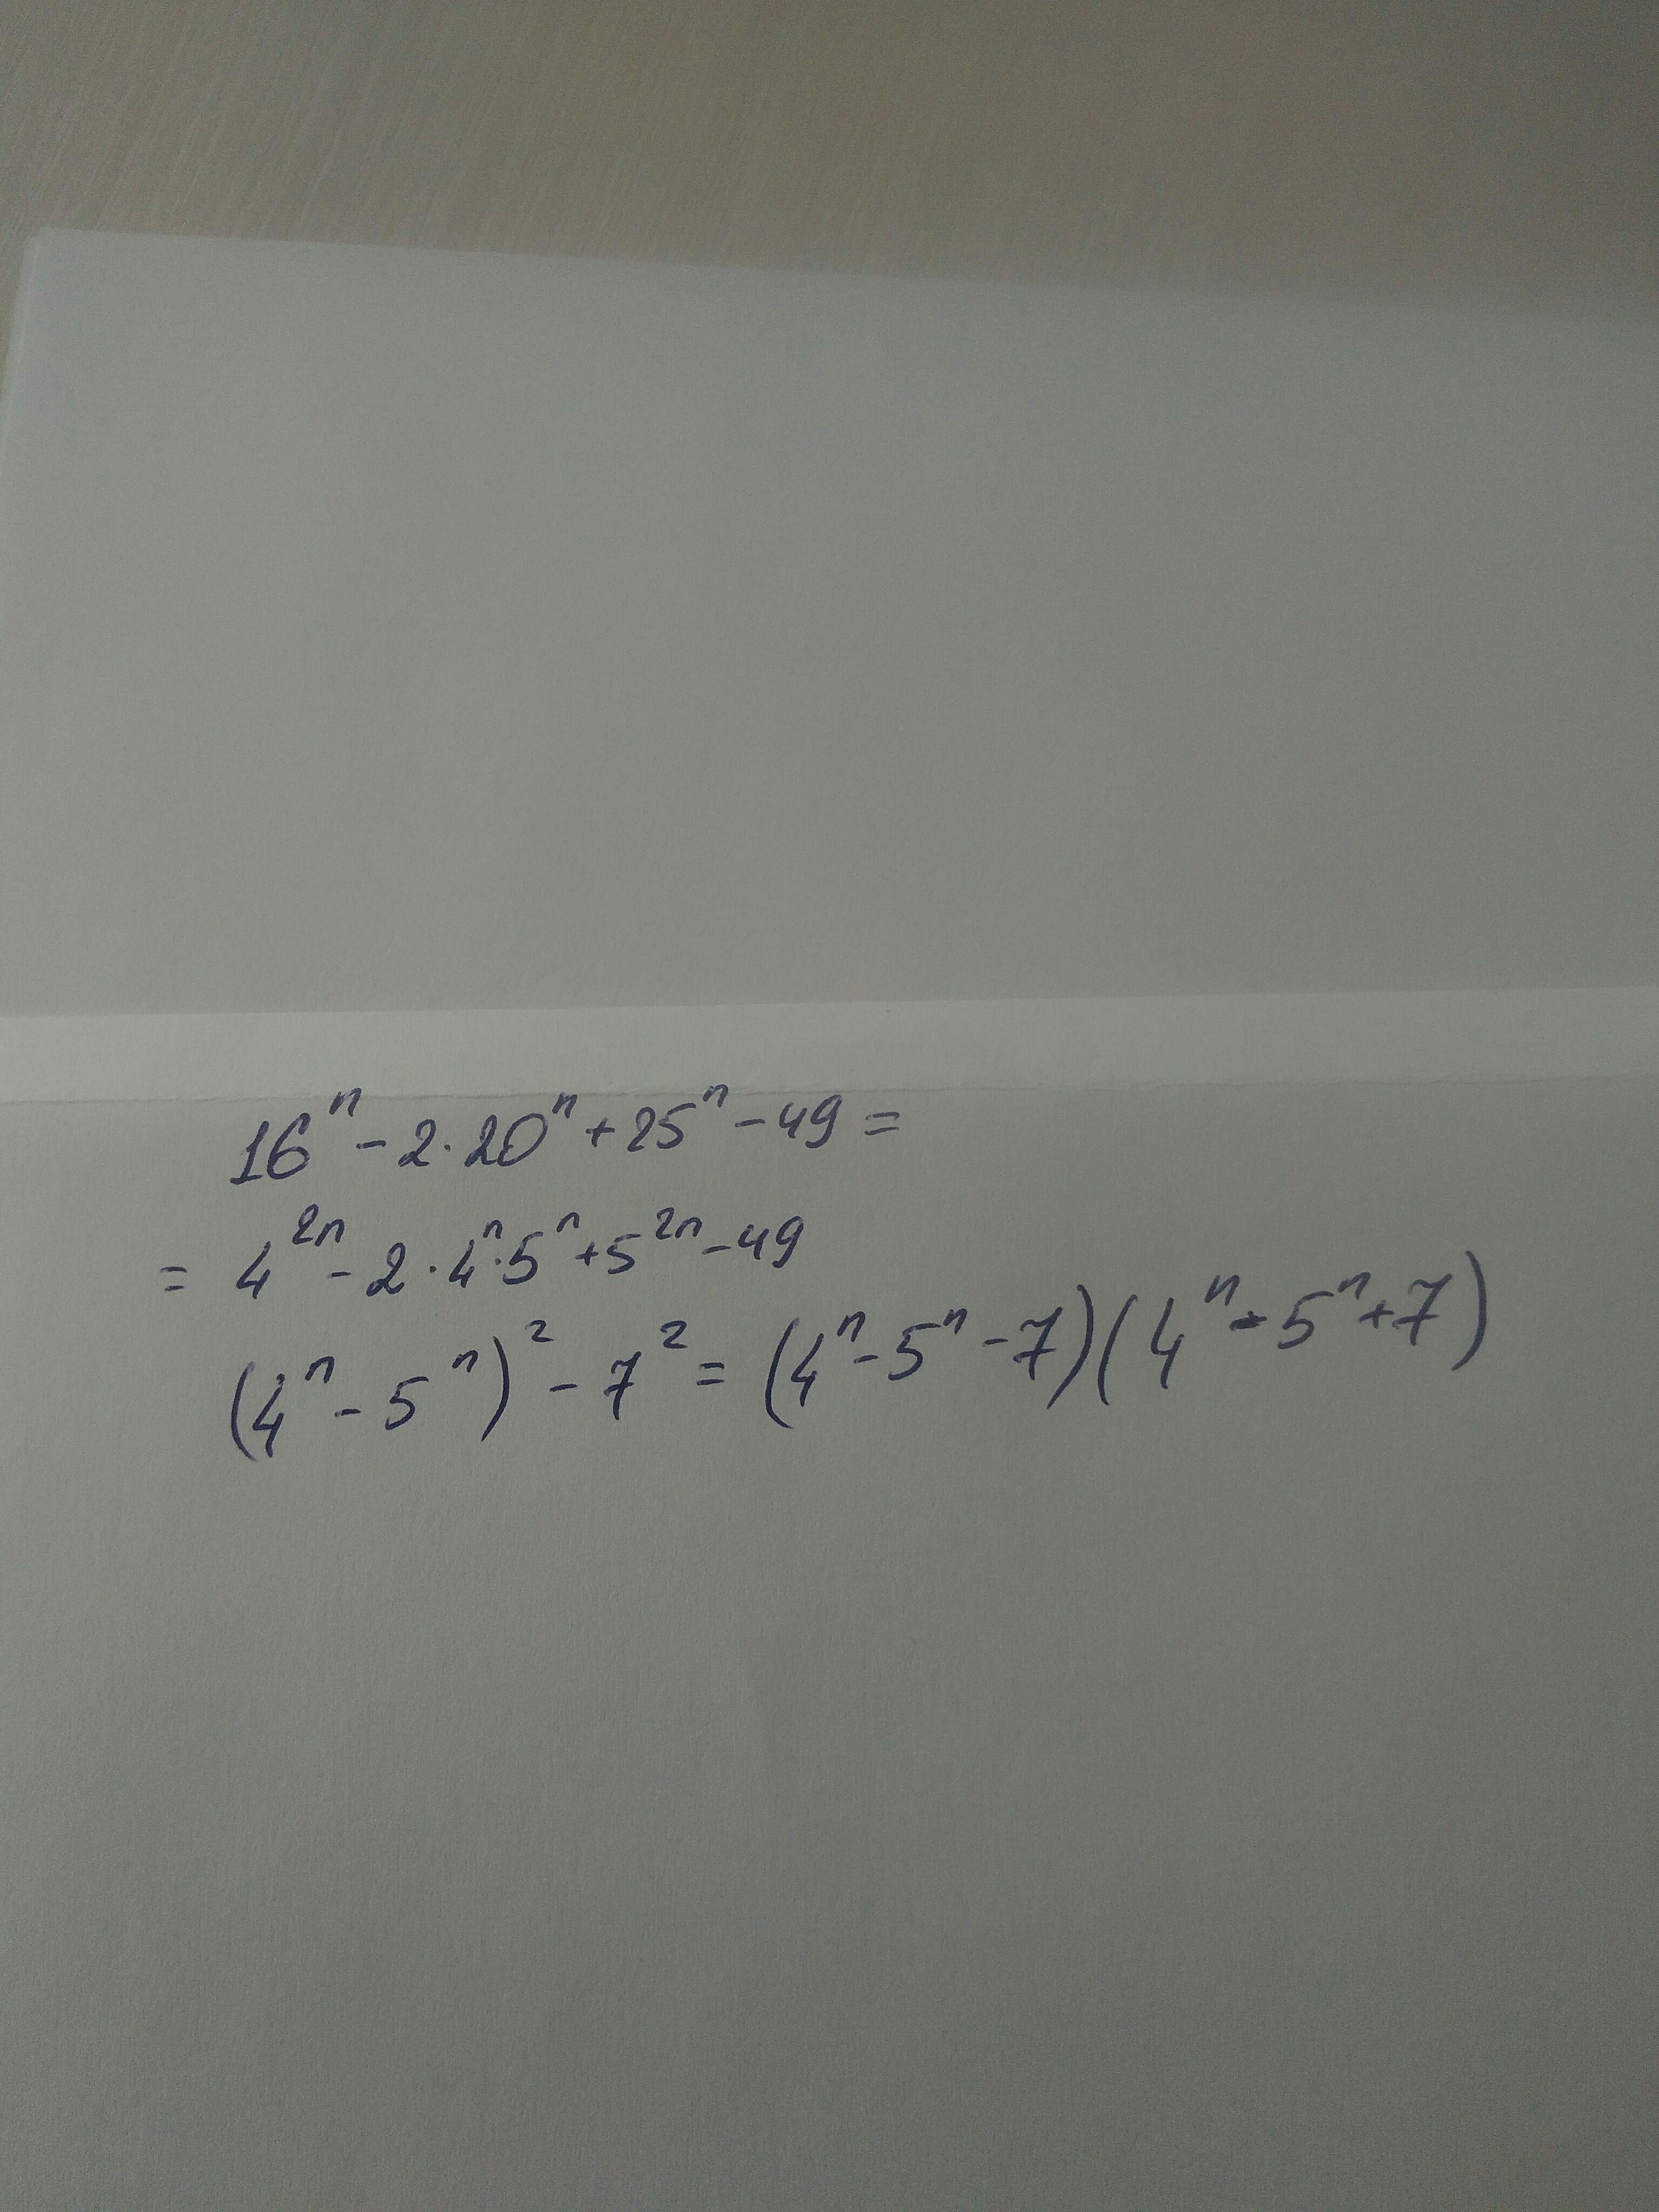 16ⁿ - 2·20ⁿ + 25ⁿ - 49 =
= 4²ⁿ - 2·4ⁿ·5ⁿ + 5²ⁿ - 49
(4ⁿ - 5ⁿ)² - 7² = (4ⁿ - 5ⁿ - 7)(4ⁿ - 5ⁿ + 7)